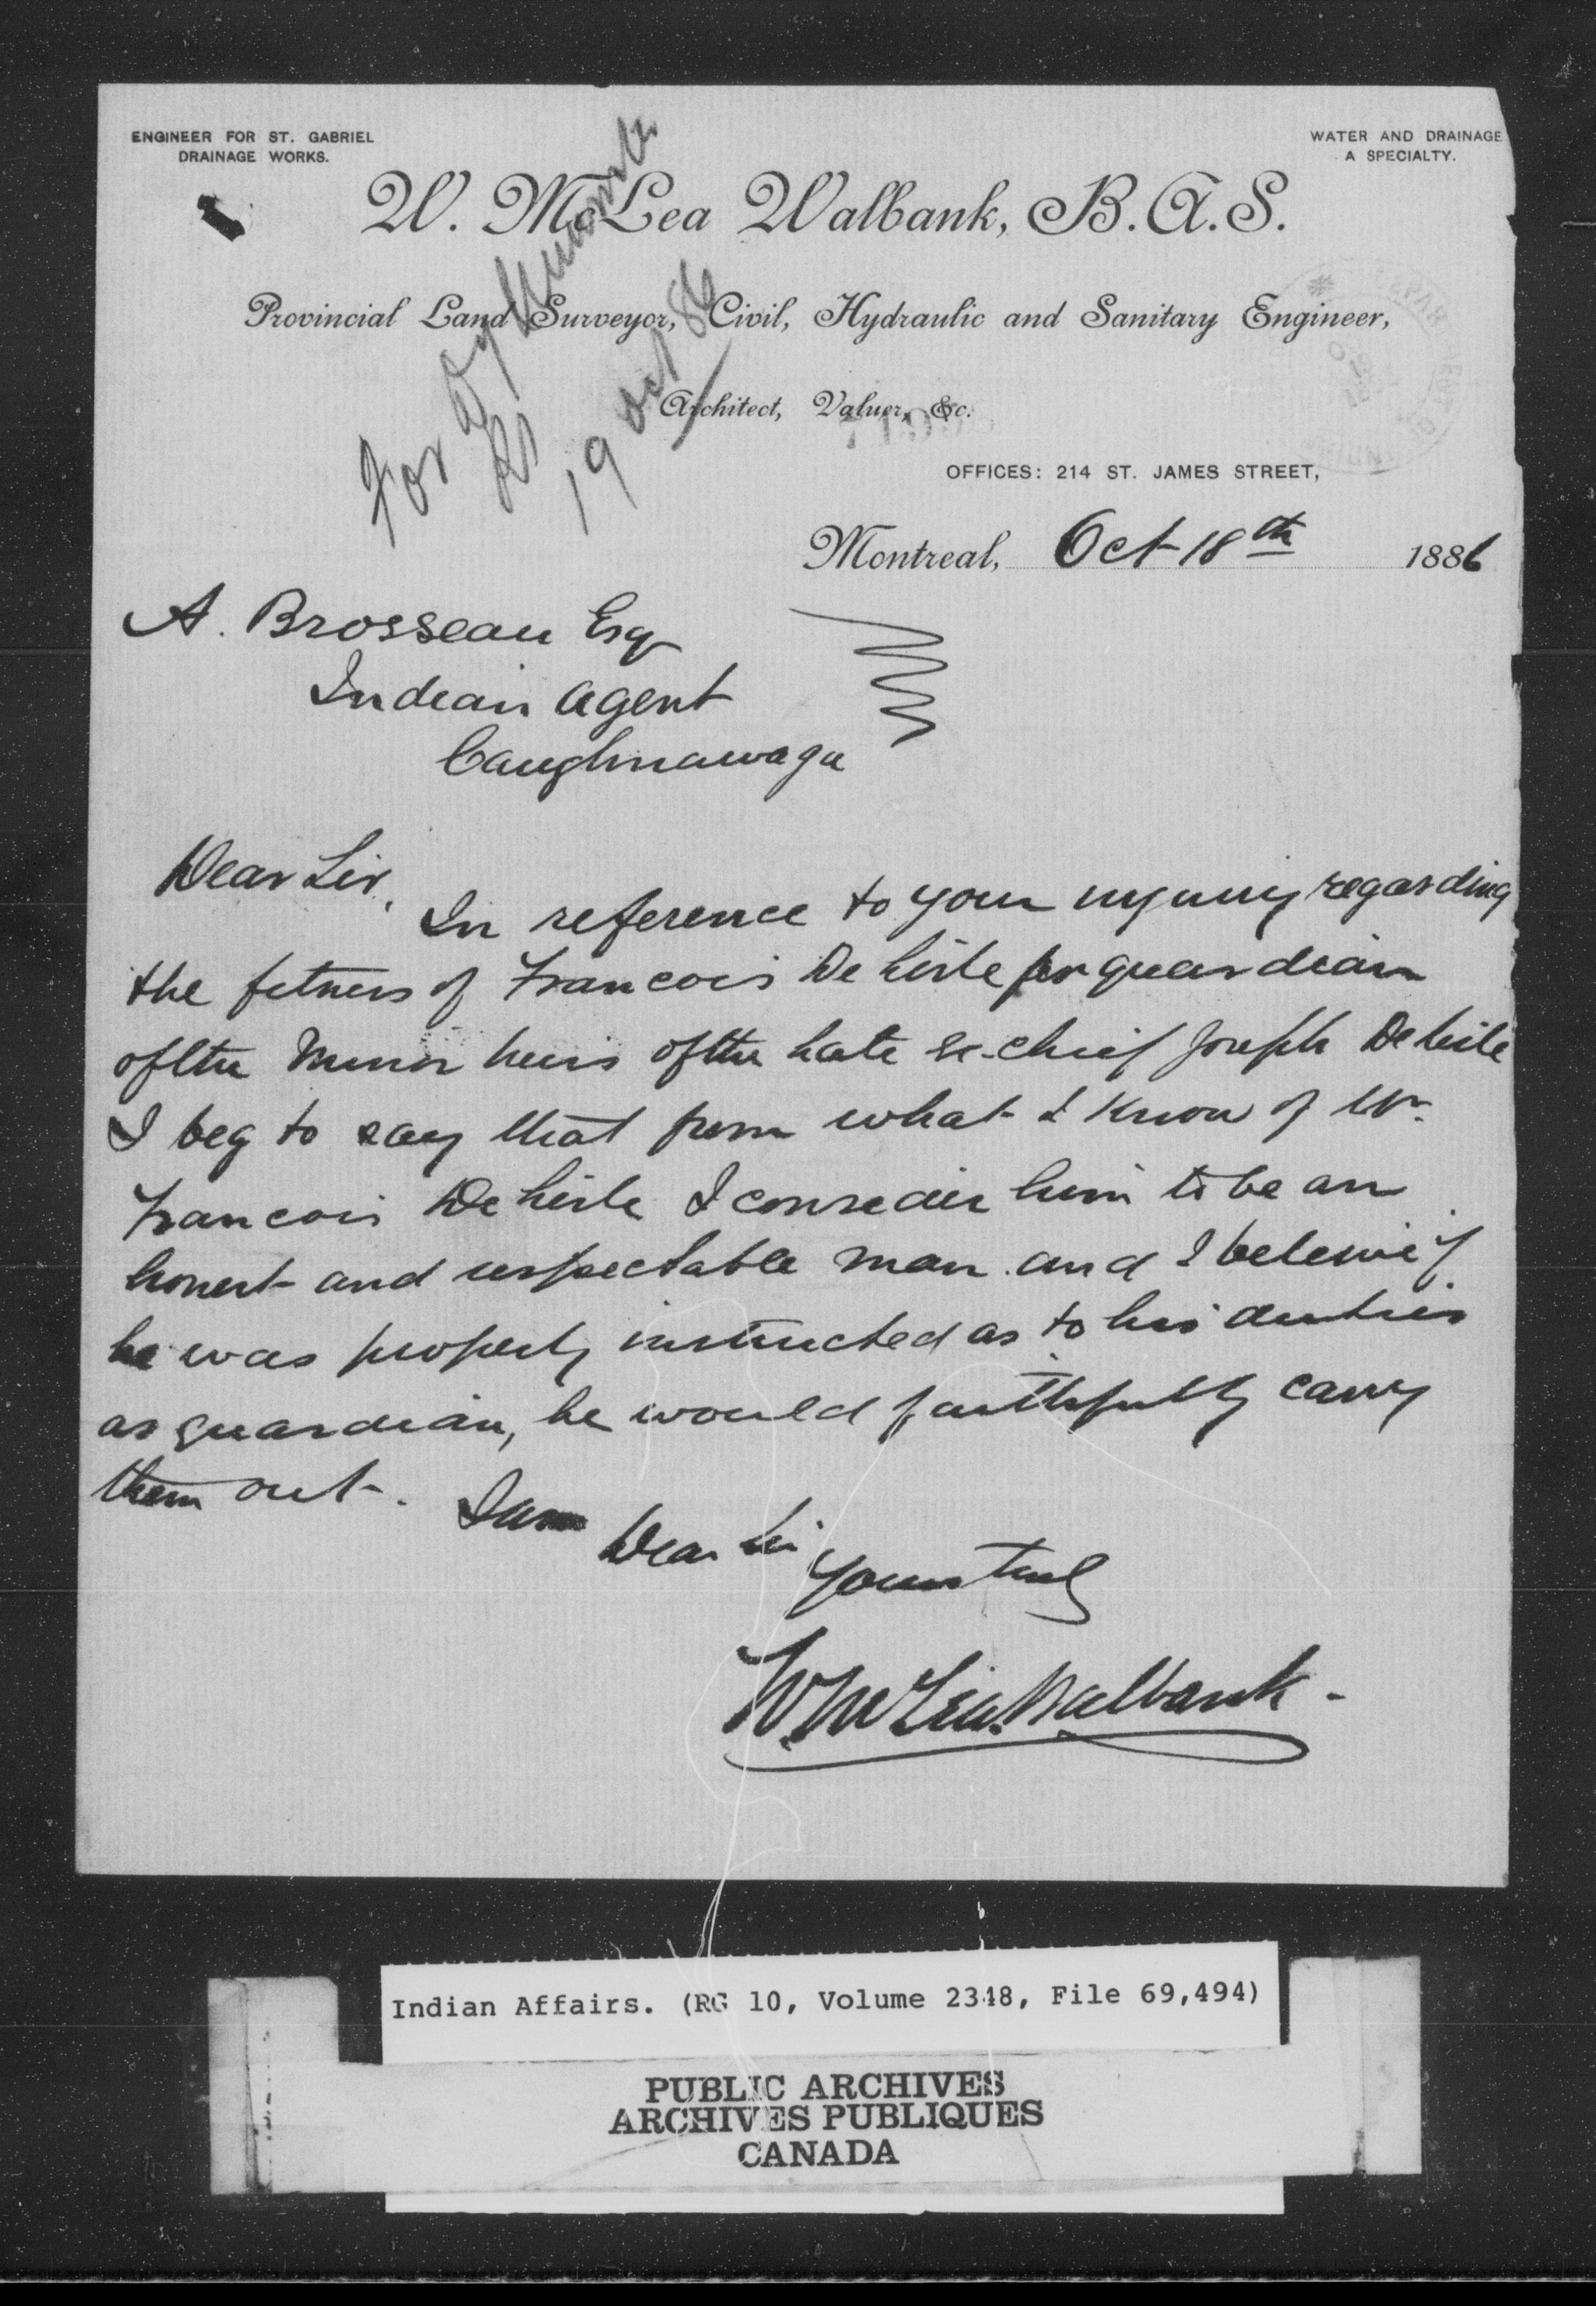 ENGINEER FOR ST. GABRIEL
DRAINAGE WORKS.
WATER AND DRAINAGE
A SPECIALTY.
W. McLea Walbank, B.A.S.
Provincial Land Surveyor, Civil, Hydraulic and Sanitary Engineer,
Architect, Valuer, &c.
For
19 Oct 86
OFFICES: 214 ST. JAMES STREET,
Montreal, Oct 18th 1886
A. Brosseau Esq
Indian Agent
Caughnawaga
Dear Sir,
In reference to your inquiry regarding
the fitness of Francois De Lisle for guardian
of the minor heirs of the late ex-chief Joseph De Lisle
I beg to say that from what I know of Mr.
Francois De Lisle I consider him to be an
honest and respectable man and I beleive if
he was properly instructed as to his duties
as guardian, he would faithfully carry
them out. I am
Dear Sir
Yours truly
W. McLea Walbank
Indian Affairs. (RG 10, Volume 2348, File 69,494)
PUBLIC ARCHIVES
ARCHIVES PUBLIQUES
CANADA